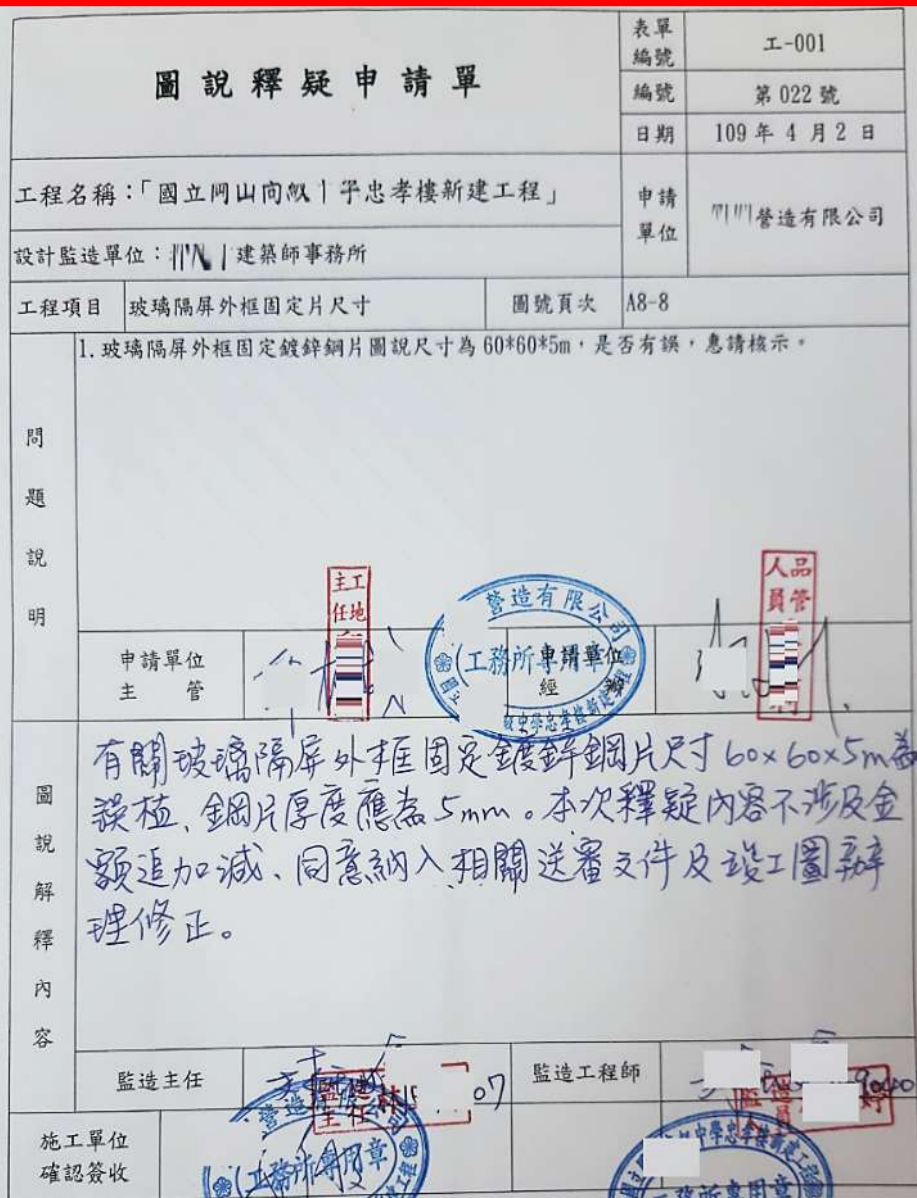 圖說釋疑申請單
表單編號 工-001
編號 第022號
日期 109年4月2日
工程名稱：「國立 忠孝樓新建工程」
申請單位 營造有限公司
設計監造單位： 建築師事務所
工程項目 玻璃隔屏外框固定片尺寸 圖號頁次 A8-8
問題說明
1.玻璃隔屏外框固定鍍鋅鋼片圖說尺寸為60*60*5m，是否有誤，惠請核示。
工地主任
營造有限公司
工務所專用章
品管人員
申請單位主管
申請單位經辦
圖說解釋內容
有關玻璃隔屏外框固定鍍鋅鋼片尺寸60x60x5m為
誤植、鋼片厚度應為5mm。本次釋疑內容不涉及金
額追加減、同意納入相關送審文件及竣工圖辦
理修正。
監造主任
監造主任
07
監造工程師
監造
施工單位確認簽收
工務所專用章
中學忠孝樓新建工程
工務所專用章